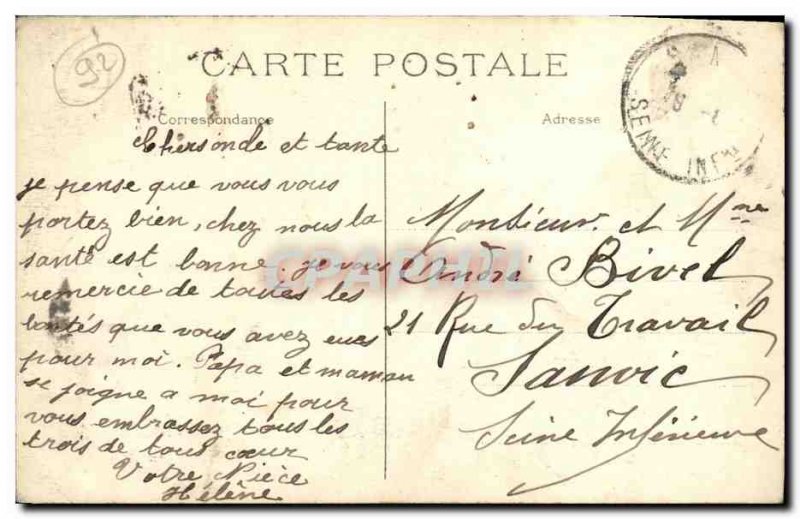 92
CARTE POSTALE
Correspondance
Adresse
SEINE INFRE
Chers onde et tante
je pense que vous vous
portez bien, chez nous la
santé est bonne. je vous
remercie de toutes les
bontés que vous avez eues
pour moi. Papa et maman
se joigne a moi pour
vous embrassez tous les
trois de tous cœur
Votre Nièce
Hélène
Monsieur et Mme
André Bivel
21 Rue du Travail
Sanvic
Seine Inférieure
CPARPHIL